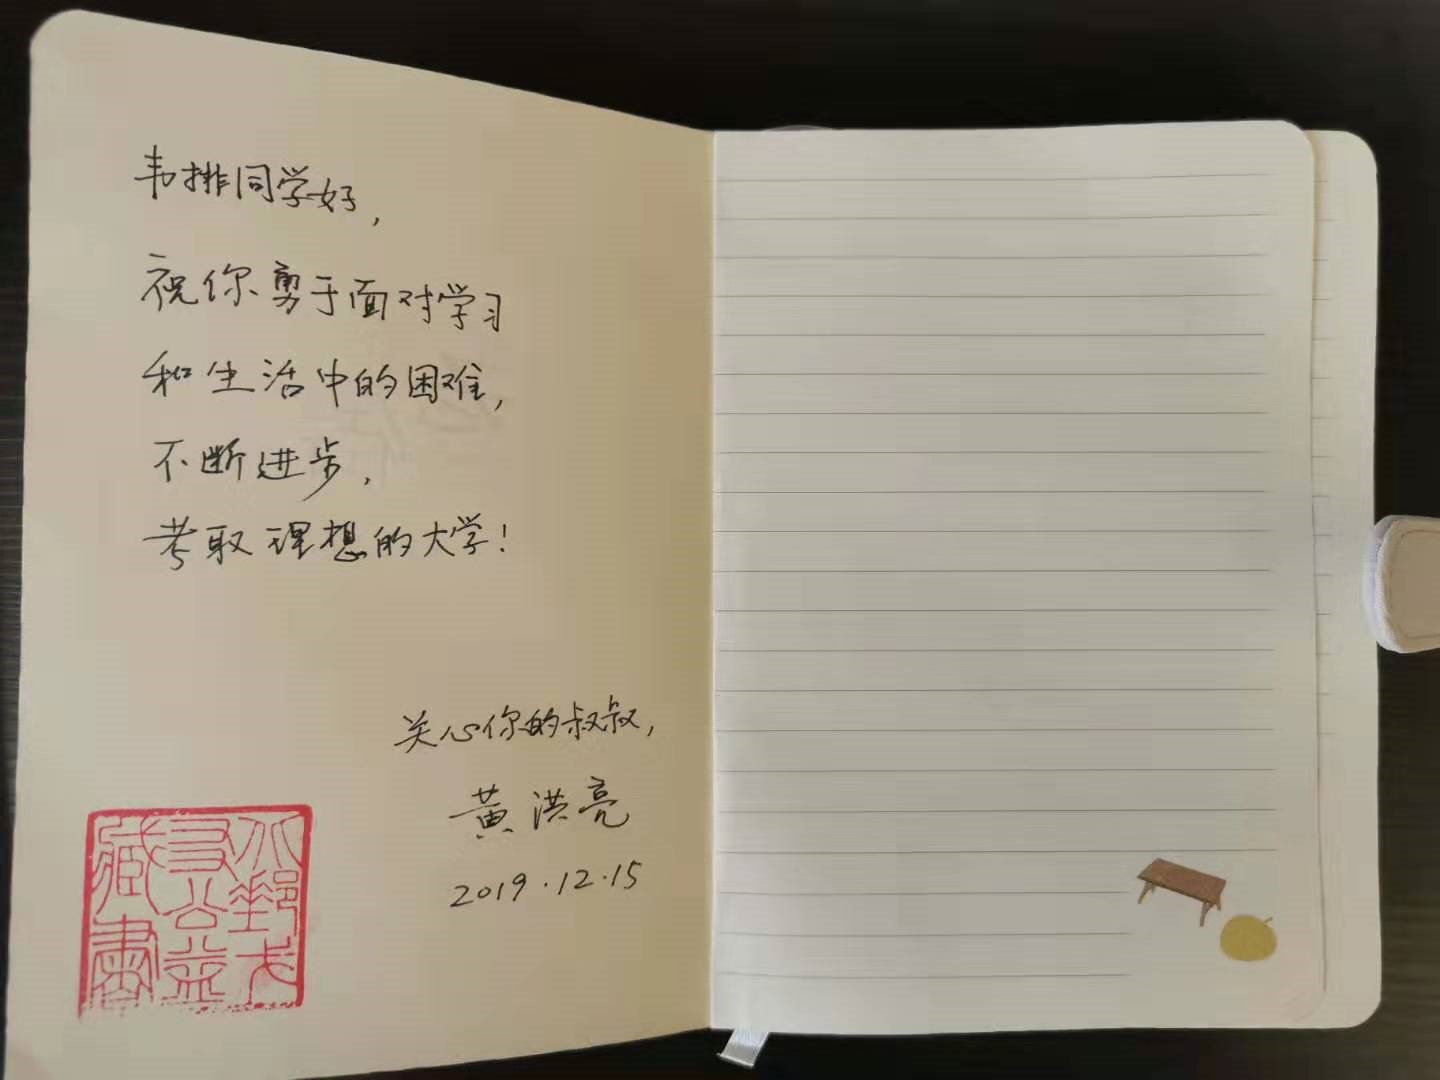 韦排同学好,
祝你勇于面对学习
和生活中的困难,
不断进步,
考取理想的大学!
关心你的叔叔,
黄洪亮
2019.12.15
公益
藏书